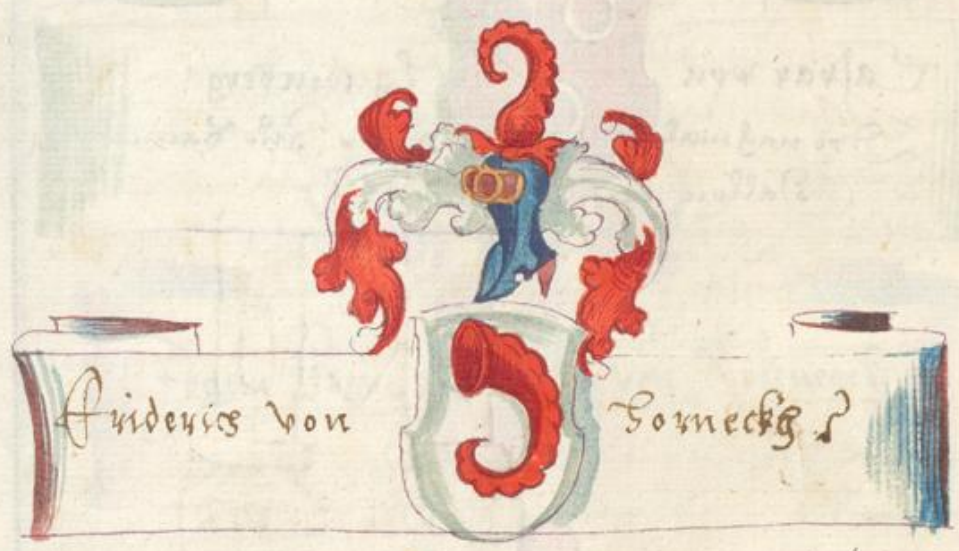 Friderich von Horneckh